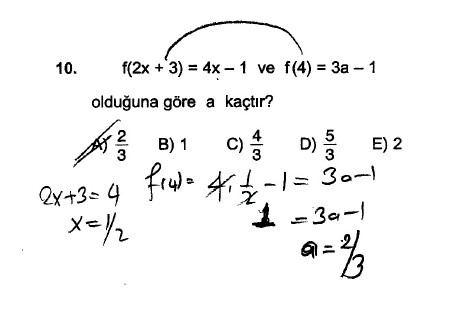 10. f(2x + 3) = 4x – 1 ve f(4) = 3a – 1
olduğuna göre a kaçtır?
A) 2/3 B) 1 C) 4/3 D) 5/3 E) 2
2x+3=4 f(4)= 4.1/2 -1 = 3a-1
x=1/2 1 = 3a-1
a=2/3